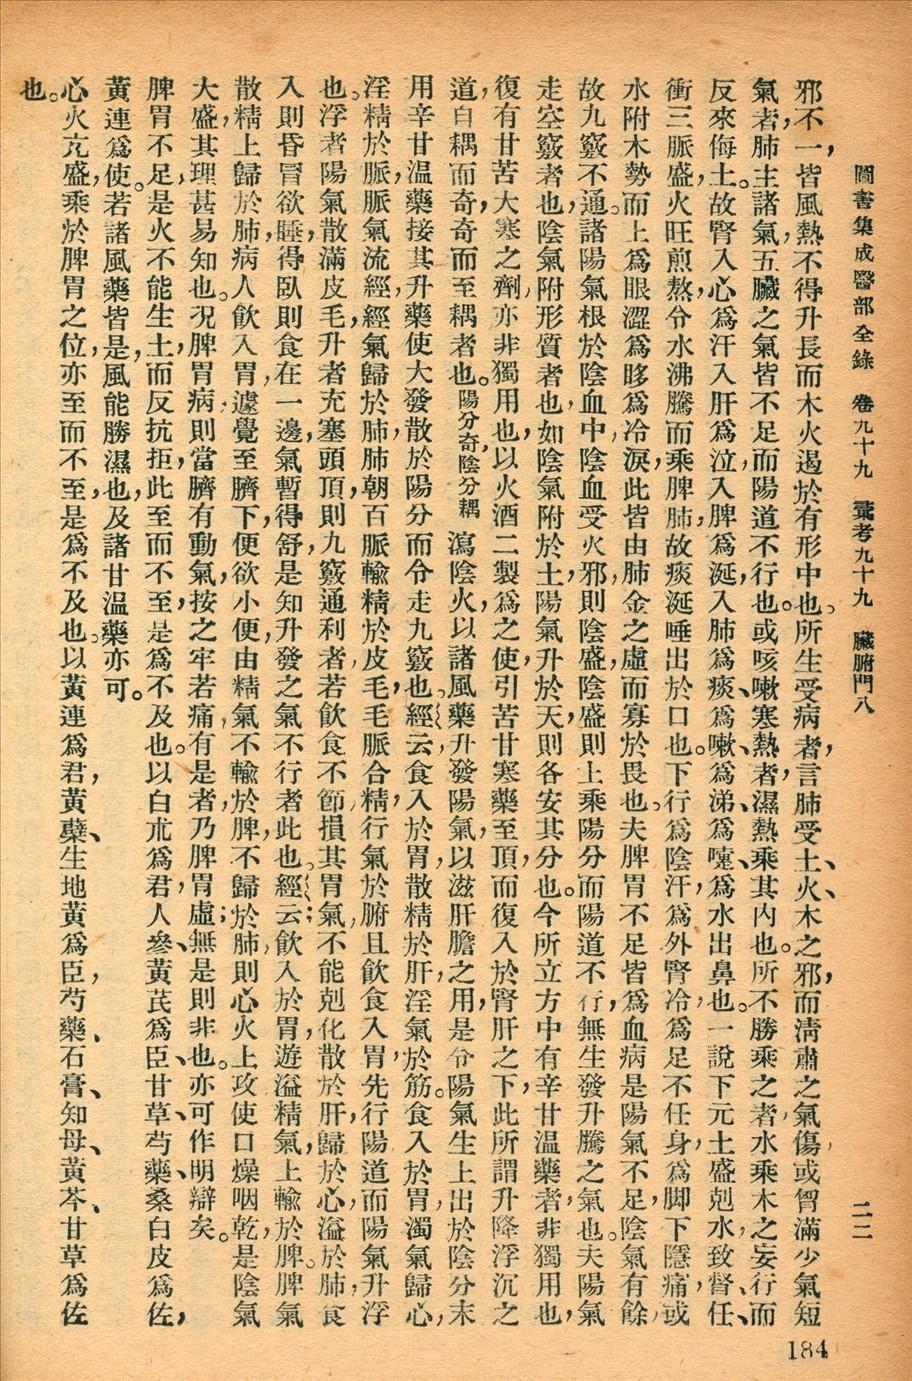 圖書集成醫部全錄　卷九十九　彙考九十九　臟腑門八　二二
邪不一,皆風熱不得升長,而木火遏於有形中也。所生受病者,言肺受土、火、木之邪,而淸肅之氣傷,或胷滿少氣短
氣者,肺主諸氣,五臟之氣皆不足,而陽道不行也。或咳嗽寒熱者,濕熱乘其內也。所不勝乘之者,水乘木之妄行而
反來侮土。故腎入心爲汗,入肝爲泣,入脾爲涎,入肺爲痰、爲嗽、爲涕、爲嚏,爲水出鼻也。一說下元土盛剋水,致督、任、
衝三脈盛,火旺煎熬,令水沸騰而乘脾肺,故痰涎唾出於口也。下行爲陰汗,爲外腎冷,爲足不任身,爲脚下隱痛,或
水附木勢而上爲眼澀,爲眵,爲冷淚,此皆由肺金之虛而寡於畏也。夫脾胃不足,皆爲血病,是陽氣不足,陰氣有餘,
故九竅不通。諸陽氣根於陰血中,陰血受火邪則陰盛,陰盛則上乘陽分,而陽道不行,無生發升騰之氣也。夫陽氣
走空竅者也,陰氣附形質者也,如陰氣附於土,陽氣升於天,則各安其分也。今所立方中,有辛甘溫藥者,非獨用也,
復有甘苦大寒之劑,亦非獨用也,以火酒二製爲之使,引苦甘寒藥至頂,而復入於腎肝之下,此所謂升降浮沉之
道,自耦而奇,奇而至耦者也。陽分奇,陰分耦　瀉陰火,以諸風藥,升發陽氣,以滋肝膽之用,是令陽氣生,上出於陰分,末
用辛甘溫藥接其升藥,使大發散於陽分,而令走九竅也。經云:食入於胃,散精於肝,淫氣於筋。食入於胃,濁氣歸心,
淫精於脈,脈氣流經,經氣歸於肺,肺朝百脈,輸精於皮毛,毛脈合精,行氣於腑,且飲食入胃,先行陽道,而陽氣升浮
也。浮者陽氣散滿皮毛,升者充塞頭頂,則九竅通利者,若飲食不節,損其胃氣,不能剋化,散於肝,歸於心,溢於肺,食
入則昏冒欲睡,得臥則食在一邊,氣暫得舒,是知升發之氣不行者此也。經云:飲入於胃,遊溢精氣,上輸於脾。脾氣
散精,上歸於肺,病人飲入胃,遽覺至臍下,便欲小便,由精氣不輸於脾,不歸於肺,則心火上攻,使口燥咽乾,是陰氣
大盛,其理甚易知也。況脾胃病,則當臍有動氣,按之牢若痛,有是者,乃脾胃虛;無是則非也。亦可作明辯矣。
脾胃不足,是火不能生土,而反抗拒,此至而不至,是爲不及也。以白朮爲君,人參、黃芪爲臣,甘草、芍藥、桑白皮爲佐,
黃連爲使。若諸風藥皆是,風能勝濕也,及諸甘溫藥亦可。
心火亢盛,乘於脾胃之位,亦至而不至,是爲不及也。以黃連爲君,黃蘗、生地黃爲臣,芍藥、石膏、知母、黃芩、甘草爲佐
也。
184